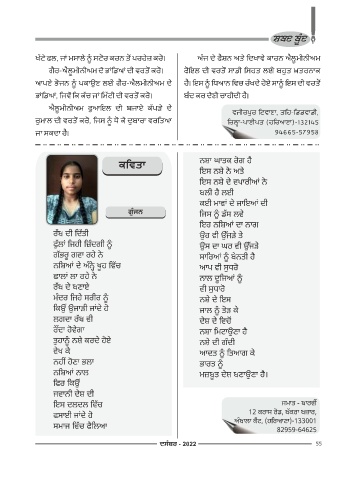 ਸ਼ਬਦ ਬੂੰਦ
ਖੱਟੇ ਫਲ, ਜਾਂ ਮਸਾਲੇ ਨੂੰ ਸਟੋਰ ਕਰਨ ਤੋਂ ਪਰਹੇਜ਼ ਕਰੋ।
ਗੈਰ-ਐਲੂਮੀਨੀਅਮ ਦੇ ਭਾਂਡਿਆਂ ਦੀ ਵਰਤੋਂ ਕਰੋ।
ਆਪਣੇ ਭੋਜਨ ਨੂੰ ਪਕਾਉਣ ਲਈ ਗੈਰ-ਐਲੂਮੀਨੀਅਮ ਦੇ
ਭਾਂਡਿਆਂ, ਜਿਵੇਂ ਕਿ ਕੱਚ ਜਾਂ ਮਿੱਟੀ ਦੀ ਵਰਤੋਂ ਕਰੋ।
ਐਲੂਮੀਨੀਅਮ ਫੁਆਇਲ ਦੀ ਬਜਾਏ ਕੱਪੜੇ ਦੇ
ਰੁਮਾਲ ਦੀ ਵਰਤੋਂ ਕਰੋ, ਜਿਸ ਨੂੰ ਧੋ ਕੇ ਦੁਬਾਰਾ ਵਰਤਿਆ
ਜਾ ਸਕਦਾ ਹੈ।
ਅੱਜ ਦੇ ਫੈਸ਼ਨ ਅਤੇ ਦਿਖਾਵੇ ਕਾਰਨ ਐਲੂਮੀਨੀਅਮ
ਫੋਇਲ ਦੀ ਵਰਤੋਂ ਸਾਡੀ ਸਿਹਤ ਲਈ ਬਹੁਤ ਖ਼ਤਰਨਾਕ
ਹੈ। ਇਸ ਨੂੰ ਧਿਆਨ ਵਿਚ ਰੱਖਦੇ ਹੋਏ ਸਾਨੂੰ ਇਸ ਦੀ ਵਰਤੋਂ
ਬੰਦ ਕਰ ਦੇਣੀ ਚਾਹੀਦੀ ਹੈ।
ਵਜੀਰਪੁਰ ਟਿਟਾਣਾ,
ਜ਼ਿਲ੍ਹਾ-ਪਾਣੀਪਤ (ਹਰਿਆਣਾ)-132145
94665-57958
ਕਵਿਤਾ
ਗੁੰਜਨ
ਰੱਬ ਦੀ ਦਿੱਤੀ
ਫੁੱਲਾਂ ਜਿਹੀ ਜ਼ਿੰਦਗੀ ਨੂੰ
ਗੱਭਰੂ ਗਵਾ ਰਹੇ ਨੇ
ਨਸ਼ਿਆਂ ਦੇ ਅੰਨ੍ਹੇ ਖੂਹ ਵਿੱਚ
ਛਾਲਾਂ ਲਾ ਰਹੇ ਨੇ
ਰੱਬ ਦੇ ਬਣਾਏ
ਮੰਦਰ ਜਿਹੇ ਸਰੀਰ ਨੂੰ
ਕਿਉਂ ਉਜਾੜੀ ਜਾਂਦੇ ਹੋ
ਲਗਦਾ ਰੱਬ ਵੀ
ਰੋਂਦਾ ਹੋਵੇਗਾ
ਤੁਹਾਨੂੰ ਨਸ਼ੇ ਕਰਦੇ ਹੋਏ
ਦੇਖ ਕੇ
ਨਹੀਂ ਹੋਣਾ ਭਲਾ
ਨਸ਼ਿਆਂ ਨਾਲ
ਫਿਰ ਕਿਉਂ
ਜਵਾਨੀ ਦੇਸ਼ ਦੀ
ਇਸ ਦਲਦਲ ਵਿੱਚ
ਫਸਾਈ ਜਾਂਦੇ ਹੋ
ਸਮਾਜ ਵਿੱਚ ਫੈਲਿਆ
ਨਸ਼ਾ ਘਾਤਕ ਰੋਗ ਹੈ
ਇਸ ਨਸ਼ੇ ਨੇ ਅਤੇ
ਇਸ ਨਸ਼ੇ ਦੇ ਵਪਾਰੀਆਂ ਨੇ
ਖਲੀ ਹੈ ਲਈ
ਕਈ ਮਾਵਾਂ ਦੇ ਜਾਇਆਂ ਦੀ
ਜਿਸ ਨੂੰ ਡੱਸ ਲਵੇ
ਇਹ ਨਸ਼ਿਆਂ ਦਾ ਨਾਗ
ਉਹ ਵੀ ਉੱਜੜੇ ਤੇ
ਉਸ ਦਾ ਘਰ ਵੀ ਉੱਜੜੇ
ਸਾਰਿਆਂ ਨੂੰ ਬੇਨਤੀ ਹੈ
ਆਪ ਵੀ ਸੁਧਰੋ
ਨਾਲ ਦੂਜਿਆਂ ਨੂੰ
ਵੀ ਸੁਧਾਰੋ
ਨਸ਼ੇ ਦੇ ਇਸ
ਜਾਲ ਨੂੰ ਤੋੜ ਕੇ
ਦੇਸ਼ ਦੇ ਵਿਚੋਂ
ਨਸ਼ਾ ਮਿਟਾਉਣਾ ਹੈ
ਨਸ਼ੇ ਦੀ ਗੰਦੀ
ਆਦਤ ਨੂੰ ਤਿਆਗ ਕੇ
ਭਾਰਤ ਨੂੰ
ਮਜ਼ਬੂਤ ਦੇਸ਼ ਬਣਾਉਣਾ ਹੈ।
ਜਮਾਤ - ਬਾਰਵੀਂ
12 ਕਰਾਸ ਰੋਡ,
ਅੰਬਾਲਾ ਕੈਂਟ, (ਹਰਿਆਣਾ)-133001
82959-64625
ਦਸੰਬਰ - 2022
55